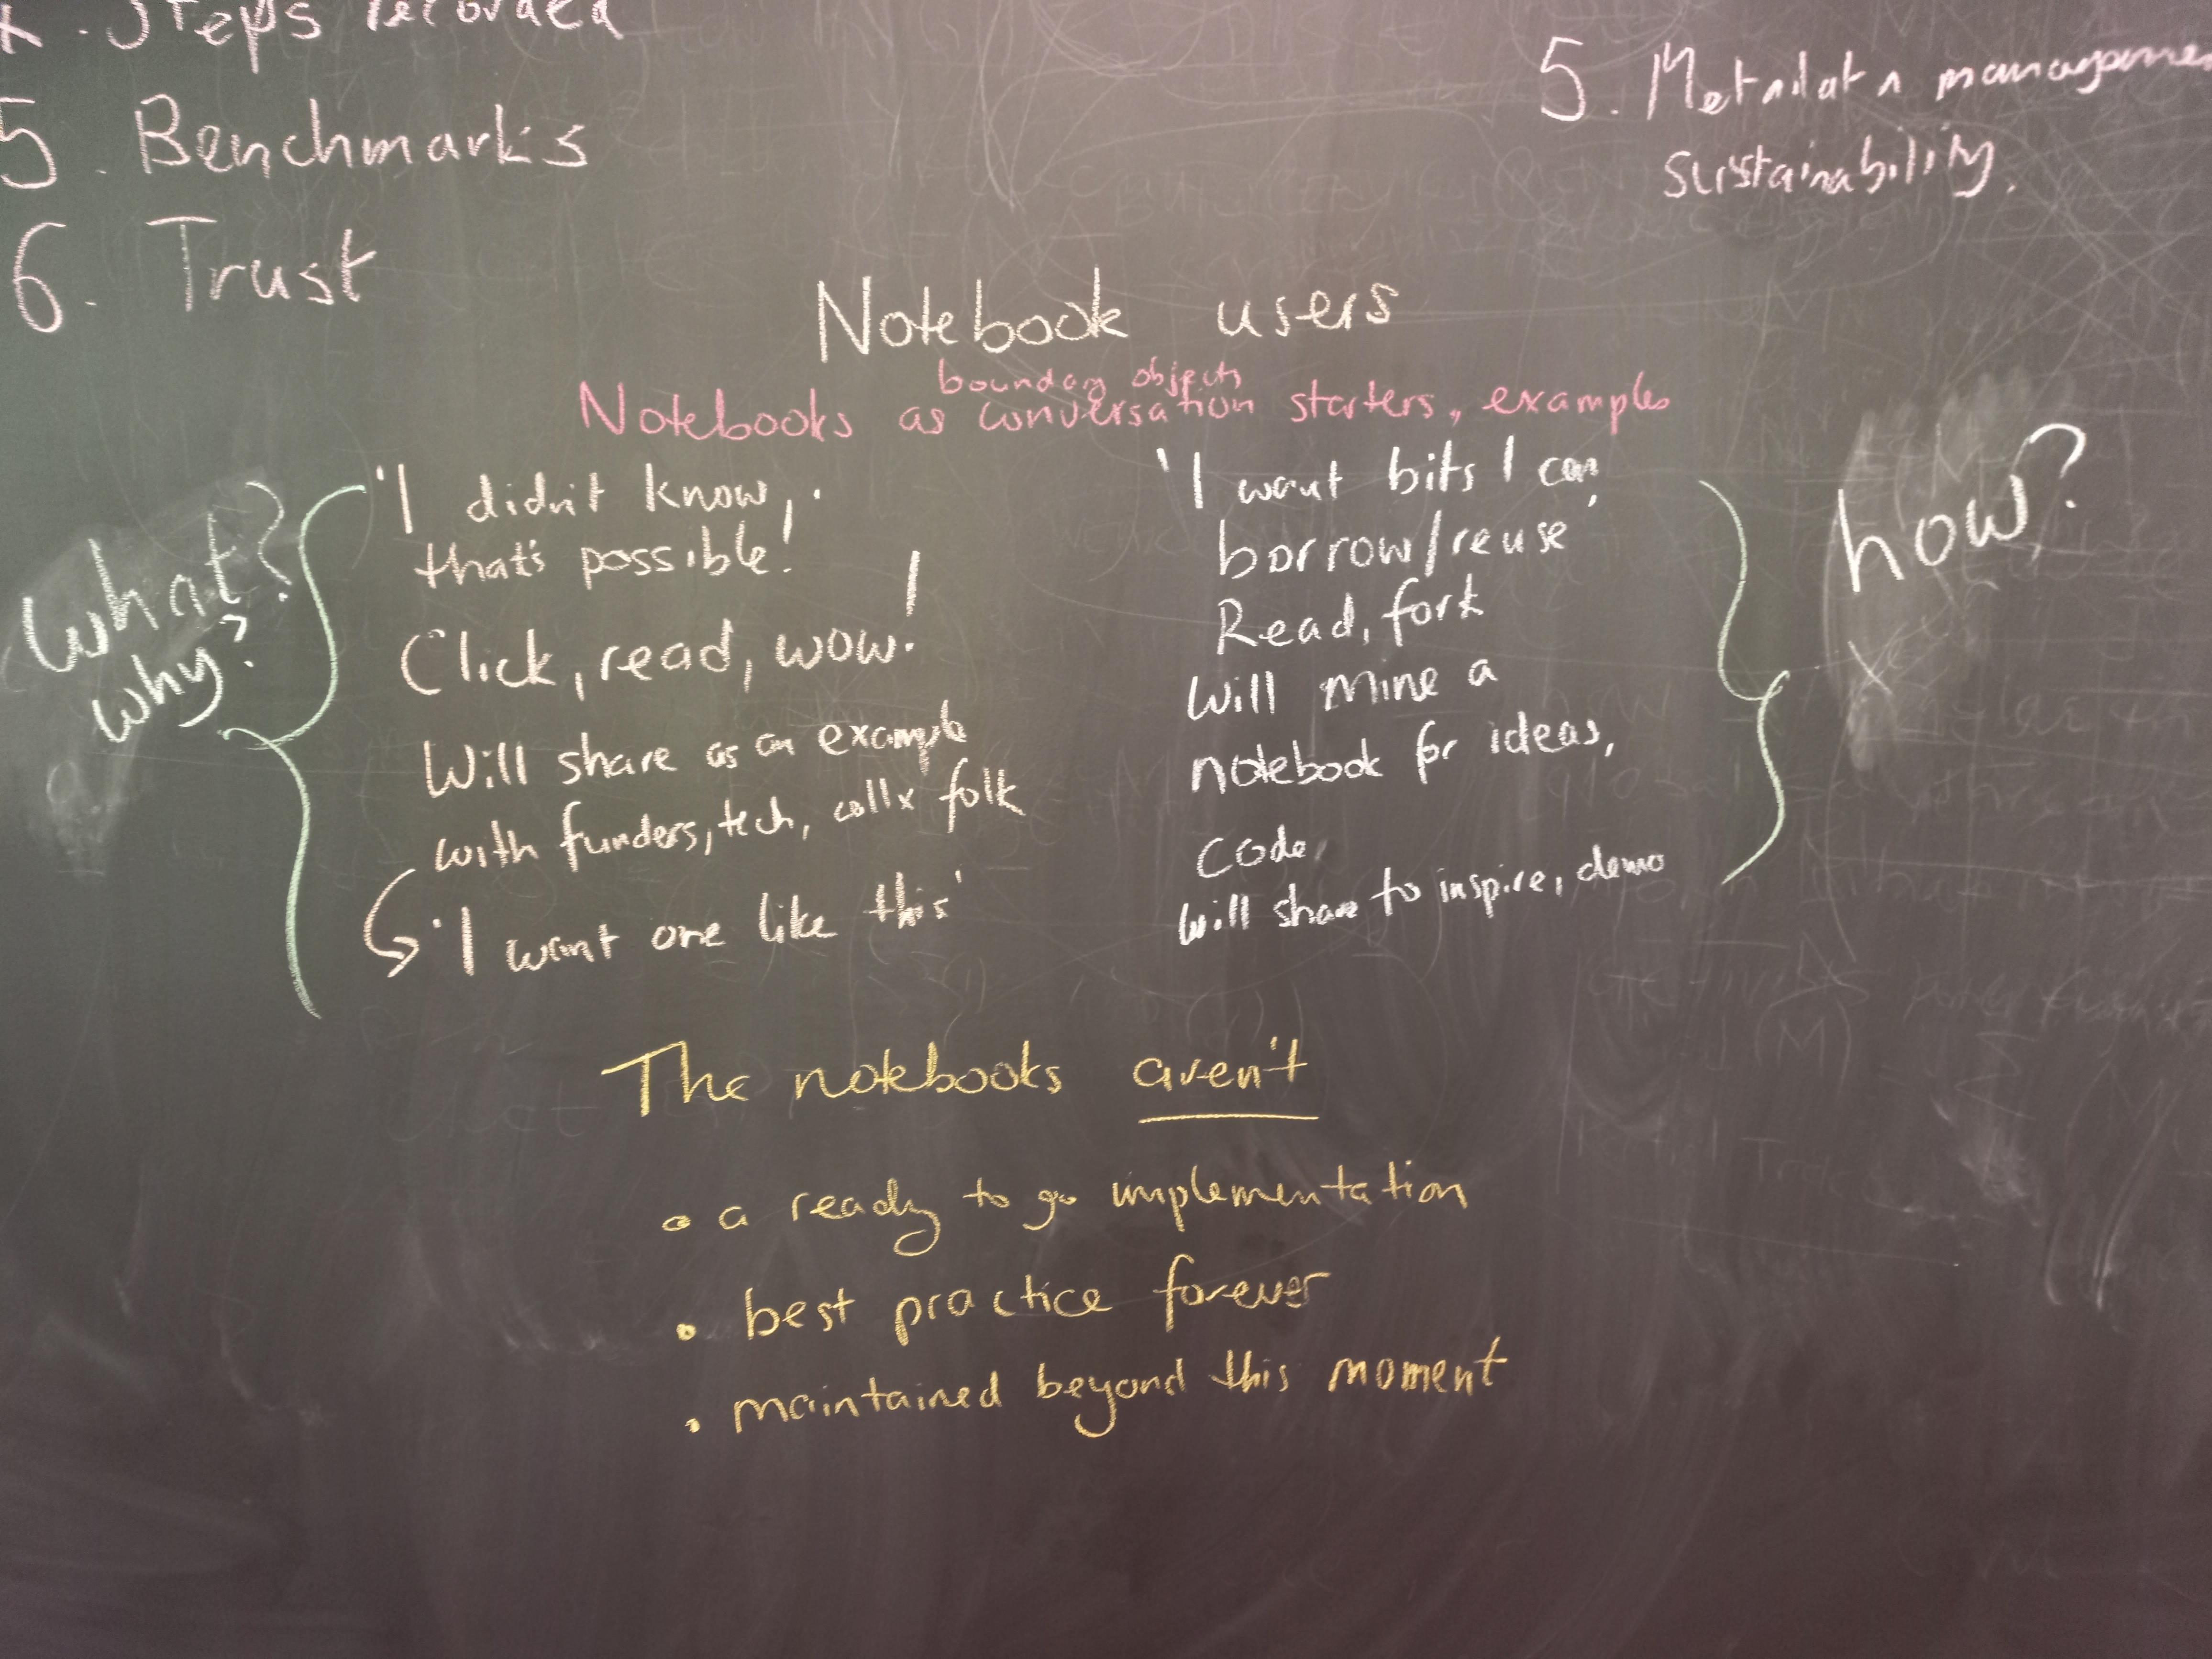 Steps recorded
5. Benchmarks
6. Trust
5. Metadata management
sustainability.
Notebook users
boundary objects
Notebooks as conversation starters, examples
What?
why?
'I didn't know,
that's possible!
Click, read, wow!
Will share as an example
with funders, tech, collx folk
'I want one like this'
'I want bits I can
borrow/reuse'
Read, fork
Will mine a
notebook for ideas,
code,
will share to inspire, demo
how?
The notebooks aren't
• a ready to go implementation
• best practice forever
• maintained beyond this moment